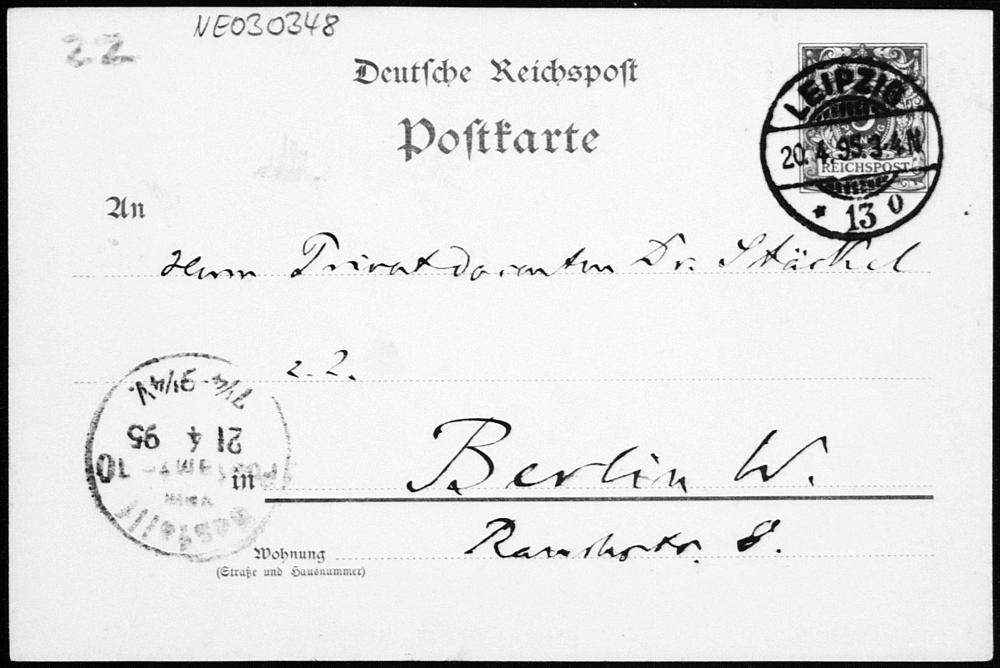 22
NE030348
Deutsche Reichspost
Postkarte
LEIPZIG
20.4.95.3-4N
REICHSPOST
* 13 o
An
Herrn Privatdocenten Dr. Stäckel
z. Z.
7¼-9¼V.
21 4 95
Postamt 10
vom
Bestellt
in Berlin W.
Wohnung 8.
(Straße und Hausnummer)